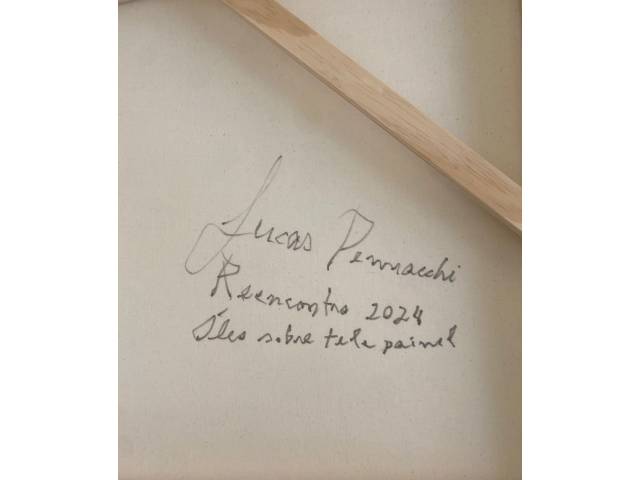 Lucas Pennacchi
Reencontro 2024
Óleo sobre tela painel